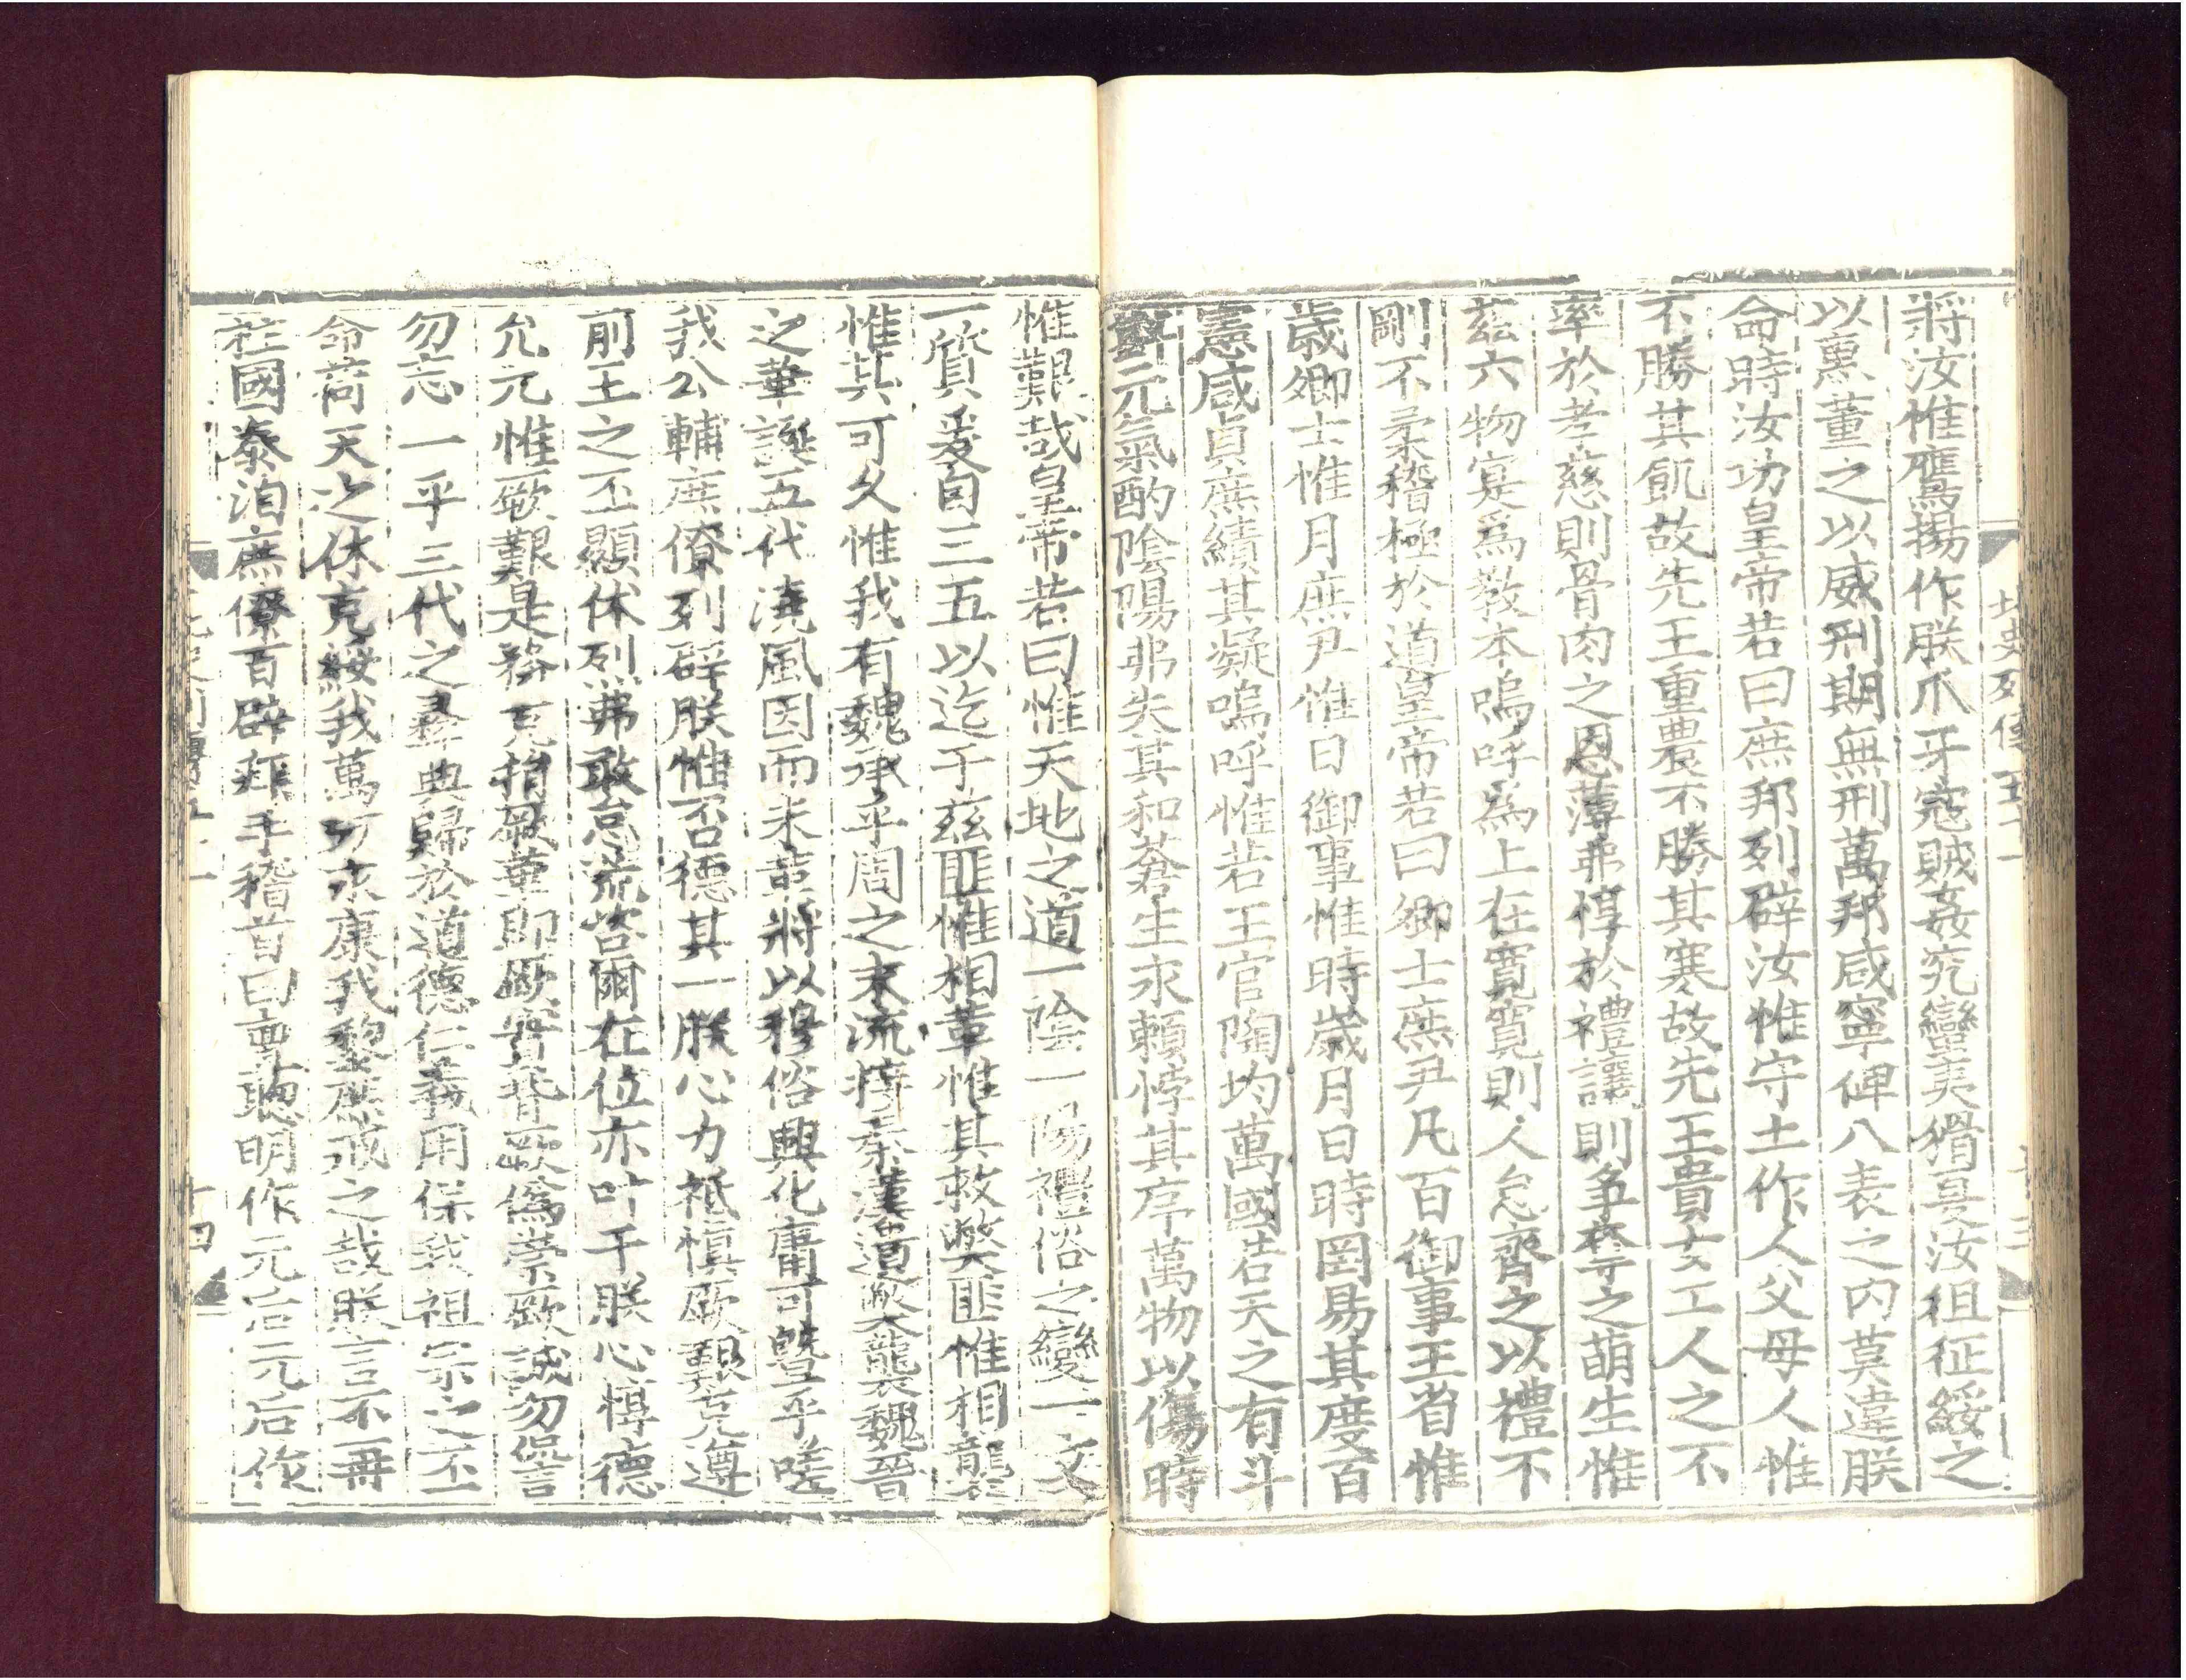 將汝惟鷹揚作朕爪牙寇賊姦宄蠻夷猾夏汝徂征綏之
以惠董之以威刑期無刑萬邦咸寧俾八表之内莫違朕
命時汝功皇帝若曰庶邦列辟汝惟守土作人父母人惟
不勝其飢故先王重農不勝其寒故先王貴女工人之不
率於孝慈則骨肉之恩薄弗惇於禮讓則争奪之萌生惟
茲六物寔爲教本嗚呼爲上在寬寬則人怠齊之以禮不
剛不柔稽極於道皇帝若曰卿士庶尹凡百御事王省惟
歳卿士惟月庶尹惟日御事惟時歳月日時罔易其度百
憲咸貞庶績其凝嗚呼惟若王官陶均萬國若天之有斗
斟元氣酌陰陽弗失其和蒼生永賴悖其序萬物以傷時
北史列傳五十二
惟艱哉皇帝若曰惟天地之道一陰一陽禮俗之變一文
一質爰自三五以迄于茲匪惟相革惟其救弊匪惟相襲
惟其可久惟我有魏承乎周之末流接秦漢遺弊襲魏晉
之華誕五代澆風因而未革將以穆俗興化庸可曁乎嗟
我公輔庶僚列辟朕惟否德其一朕心力祗慎厥艱克遵
前王之丕顯休烈弗敢怠荒咨爾在位亦叶于朕心惇德
允元惟厥艱是務克捐厥華即厥實背厥僞崇厥誠勿愆
勿忘一乎三代之彝典歸於道德仁義用保我祖宗之丕
命荷天之休克綏我萬方永康我黎庶戒之哉朕言不再
柱國泰洎庶僚百辟拜手稽首曰亶聰明作元后元后作
十四